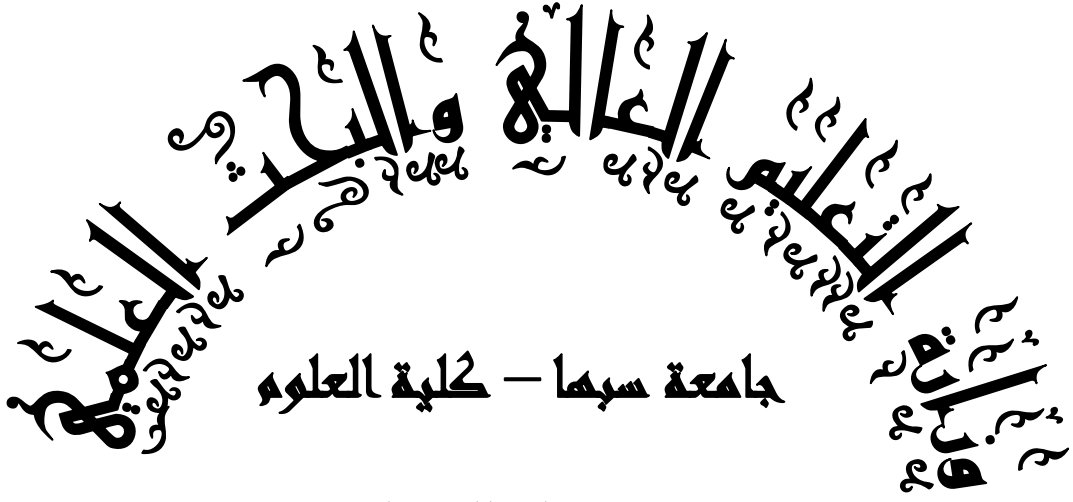 وزارة التعليم العالي والبحث العلمي
جامعة سبها – كلية العلوم